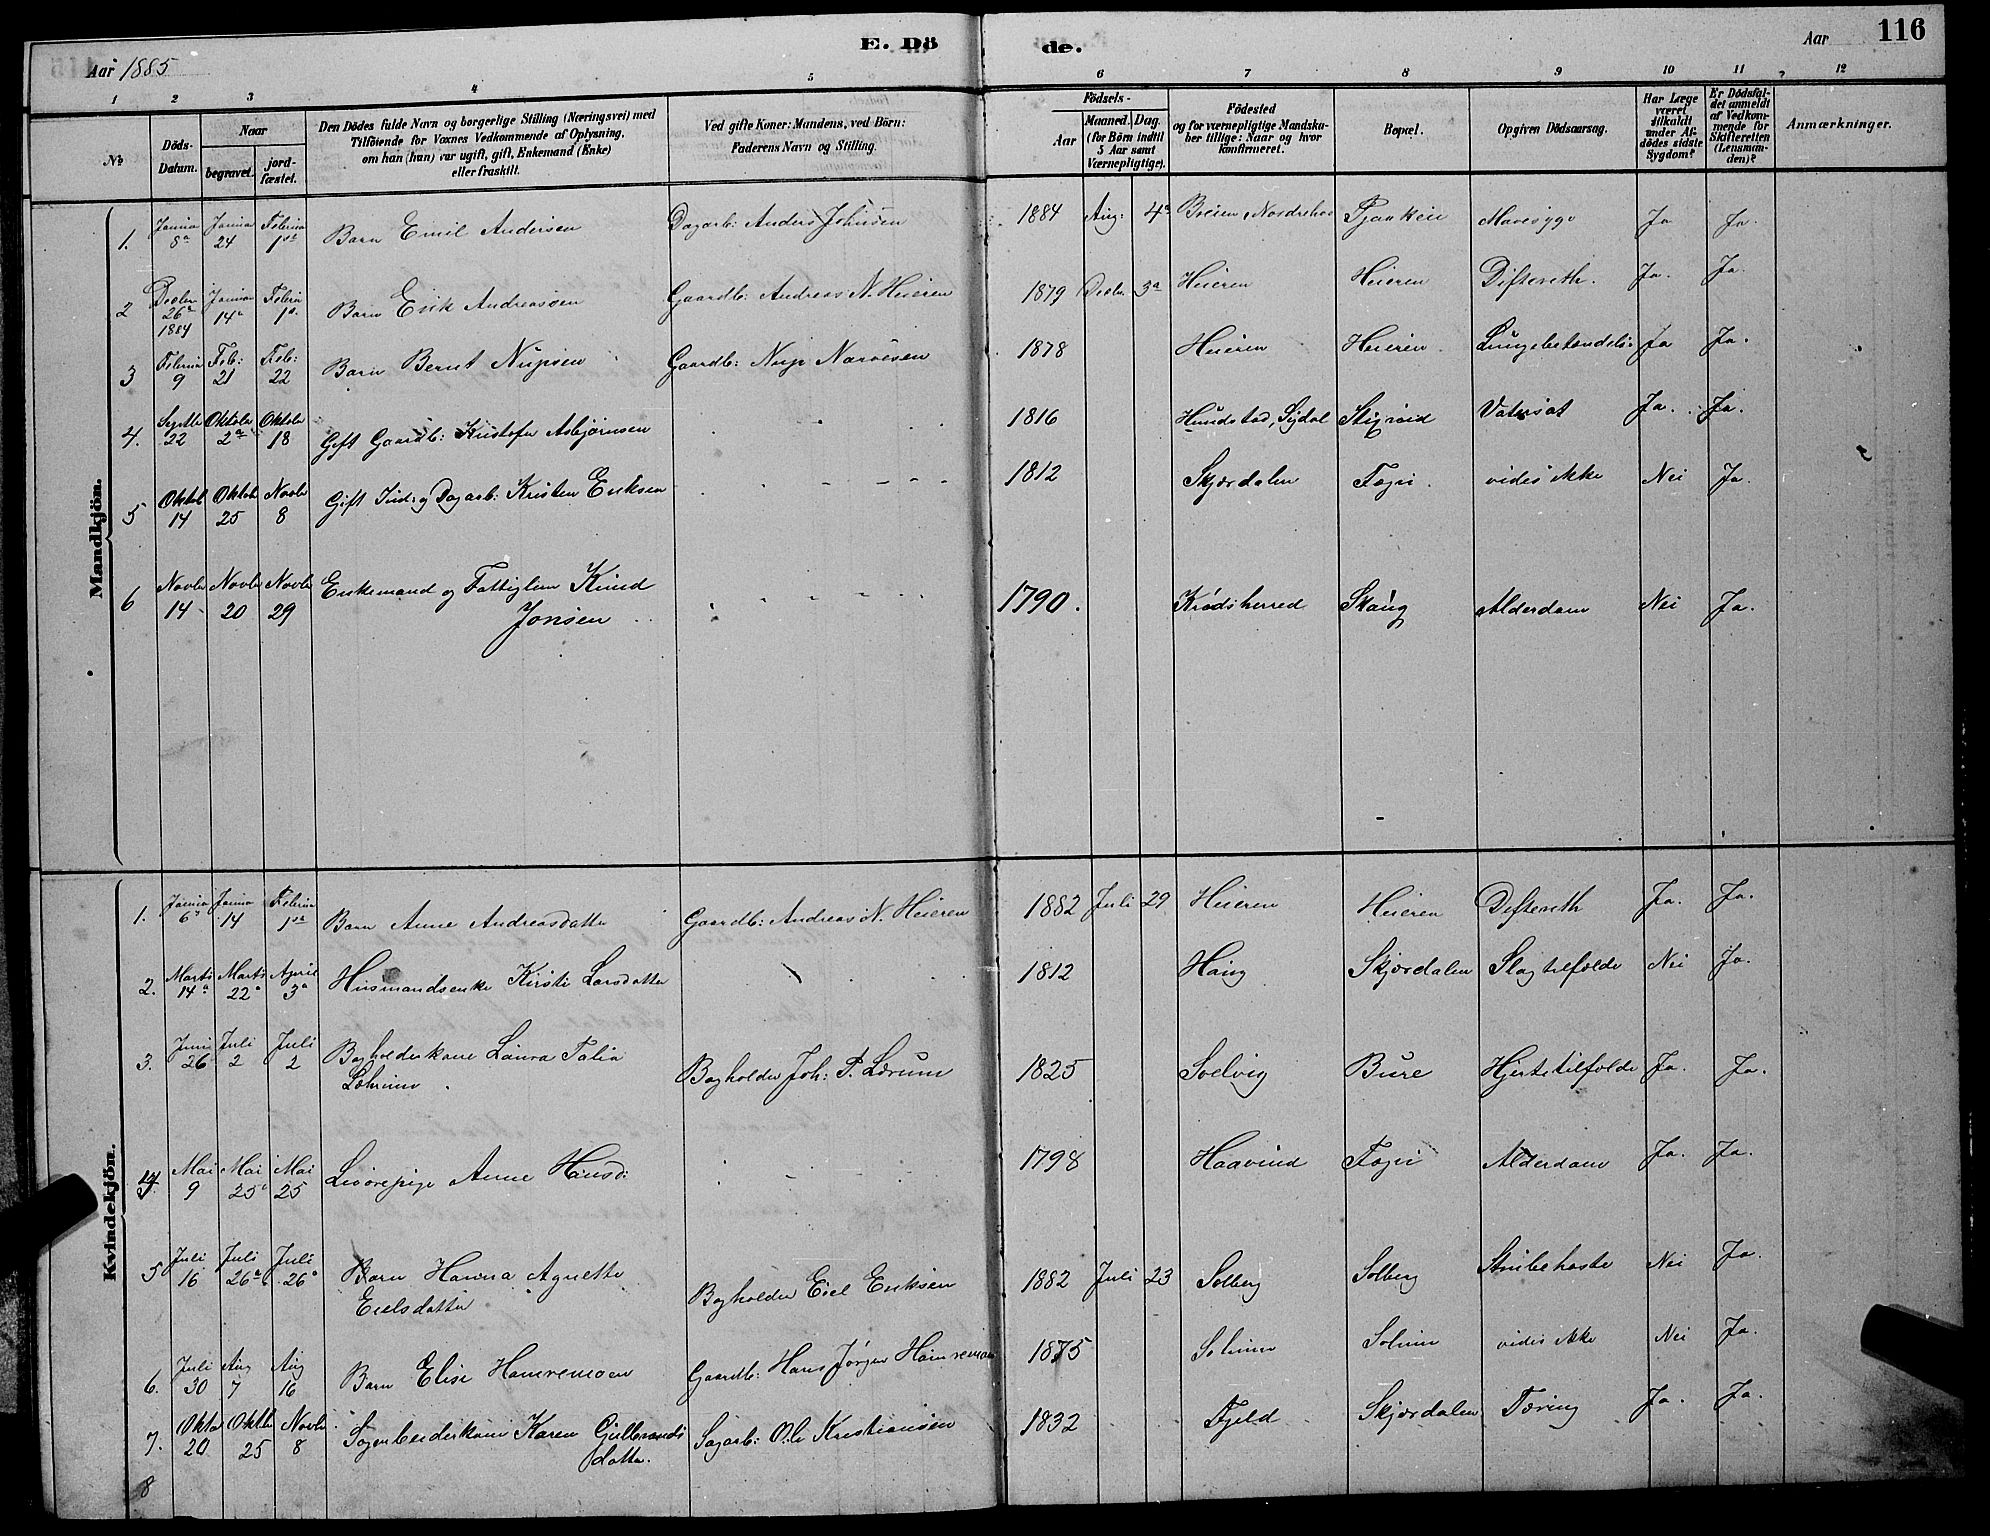 E. Dö de.
Aar 1885 Aar 116
1 2 3 4 5 6 7 8 9 10 11 12
№ Döds-Datum. Naar begravet. jordfæstet. Den Dödes fulde Navn og borgerlige Stilling (Næringsvei) med Tilföiende for Voxnes Vedkommende af Oplysning, om han (hun) var ugift, gift, Enkemand (Enke) eller fraskilt. Ved gifte Koner: Mandens, ved Börn: Faderens Navn og Stilling. Födsels- Aar Maaned. Dag. (for Börn indtil 5 Aar samt Værnepligtige). Födested og for værnepligtige Mandskaber tillige: Naar og hvor konfirmeret. Bopæl. Opgiven Dödsaarsag. Har Læge været tilkaldt under Afdödes sidste Sygdom? Er Dödsfaldet anmeldt af Vedkommende for Skifteretten (Lensmanden)? Anmærkninger.
Mandkjön.
1. Janua 8a Janua 24 Februa 1ste Barn Emil Andersen Dagarb: Anders Johnsen 1884 Aug: 4a Breien Nordrehov Tjaakeli Mavesyge Ja Ja.
2 Decbr 26a 1884 Janua 14a Februa 1s. Barn Erik Andreasøen Gaardb: Andreas N. Heieren 1879 Decbr. 3a Heieren Heieren Difterith. Ja. Ja.
3 Februa 9 Feb: 21 Feb: 22 Barn Bernt Nupsen Gaardb: Nup Narvesen 1878 Heieren Heieren Lungebetændelse Ja Ja.
4. Septbr 22 Oktober 2a Oktober 18 Gift Gaardb: Kristofer Asbjørnsen 1816 Hundstad, Sigdal Vatersot Ja. Ja.
5 Oktob 14 Oktob 25 Novbr 8 Gift Ind: og Dagarb: Kristen Eriksen 1812 Skjærdalen Fegri vides ikke Nei Ja.
6 Novbr 14 Novbr 20 Novbr 29 Enkemand og Fattiglem Knud Jonsen 1790. Krødsherred Skaug Alderdom Nei Ja.
Kvindekjön.
1. Janua 6 Janua 14 Februa 1ste Barn Anne Andreasdatter Gaardb: Andreas N. Heieren 1882 Juli 29 Heieren Heieren Difterith Ja. Ja.
2. Marts 14a Marts 22a April 3a Husmandsenke Kirsti Larsdatter 1812 Haug Skjærdalen Slagtilfælde Nei Ja.
3. Juni 26 Juli 2 Juli 2 Bogholderkone Laura Talia Lærum Bogholder Joh: P. Lærum 1825 Soelvig Bure Hjertetilfælde Ja. Ja.
4 Mai 9 Mai 25 Mai 25 Livørepige Anne Hansd: 1798 Haavind Fegri Alderdom Ja. Ja.
5 Juli 16 Juli 26a Juli 26a Barn Hanna Agnette Eielsdatter Bogholder Eiel Eriksen 1882 Juli 23 Solberg Solberg Strubehoste Nei Ja.
6. Juli 30 Aug 7 Aug 16 Barn Elise Hamremoen Gaardb: Hans Jørgen Hamremoen 1875 Solum Solum vides ikke Nei Ja.
7. Oktob 20 Oktbr 25 Novbr 8 Sagarbeiderkone Karen Gulbrandsdatter. Sagarb: Ole Kristiansen 1832 Fjeld Skjærdalen Tæring Ja. Ja.
8